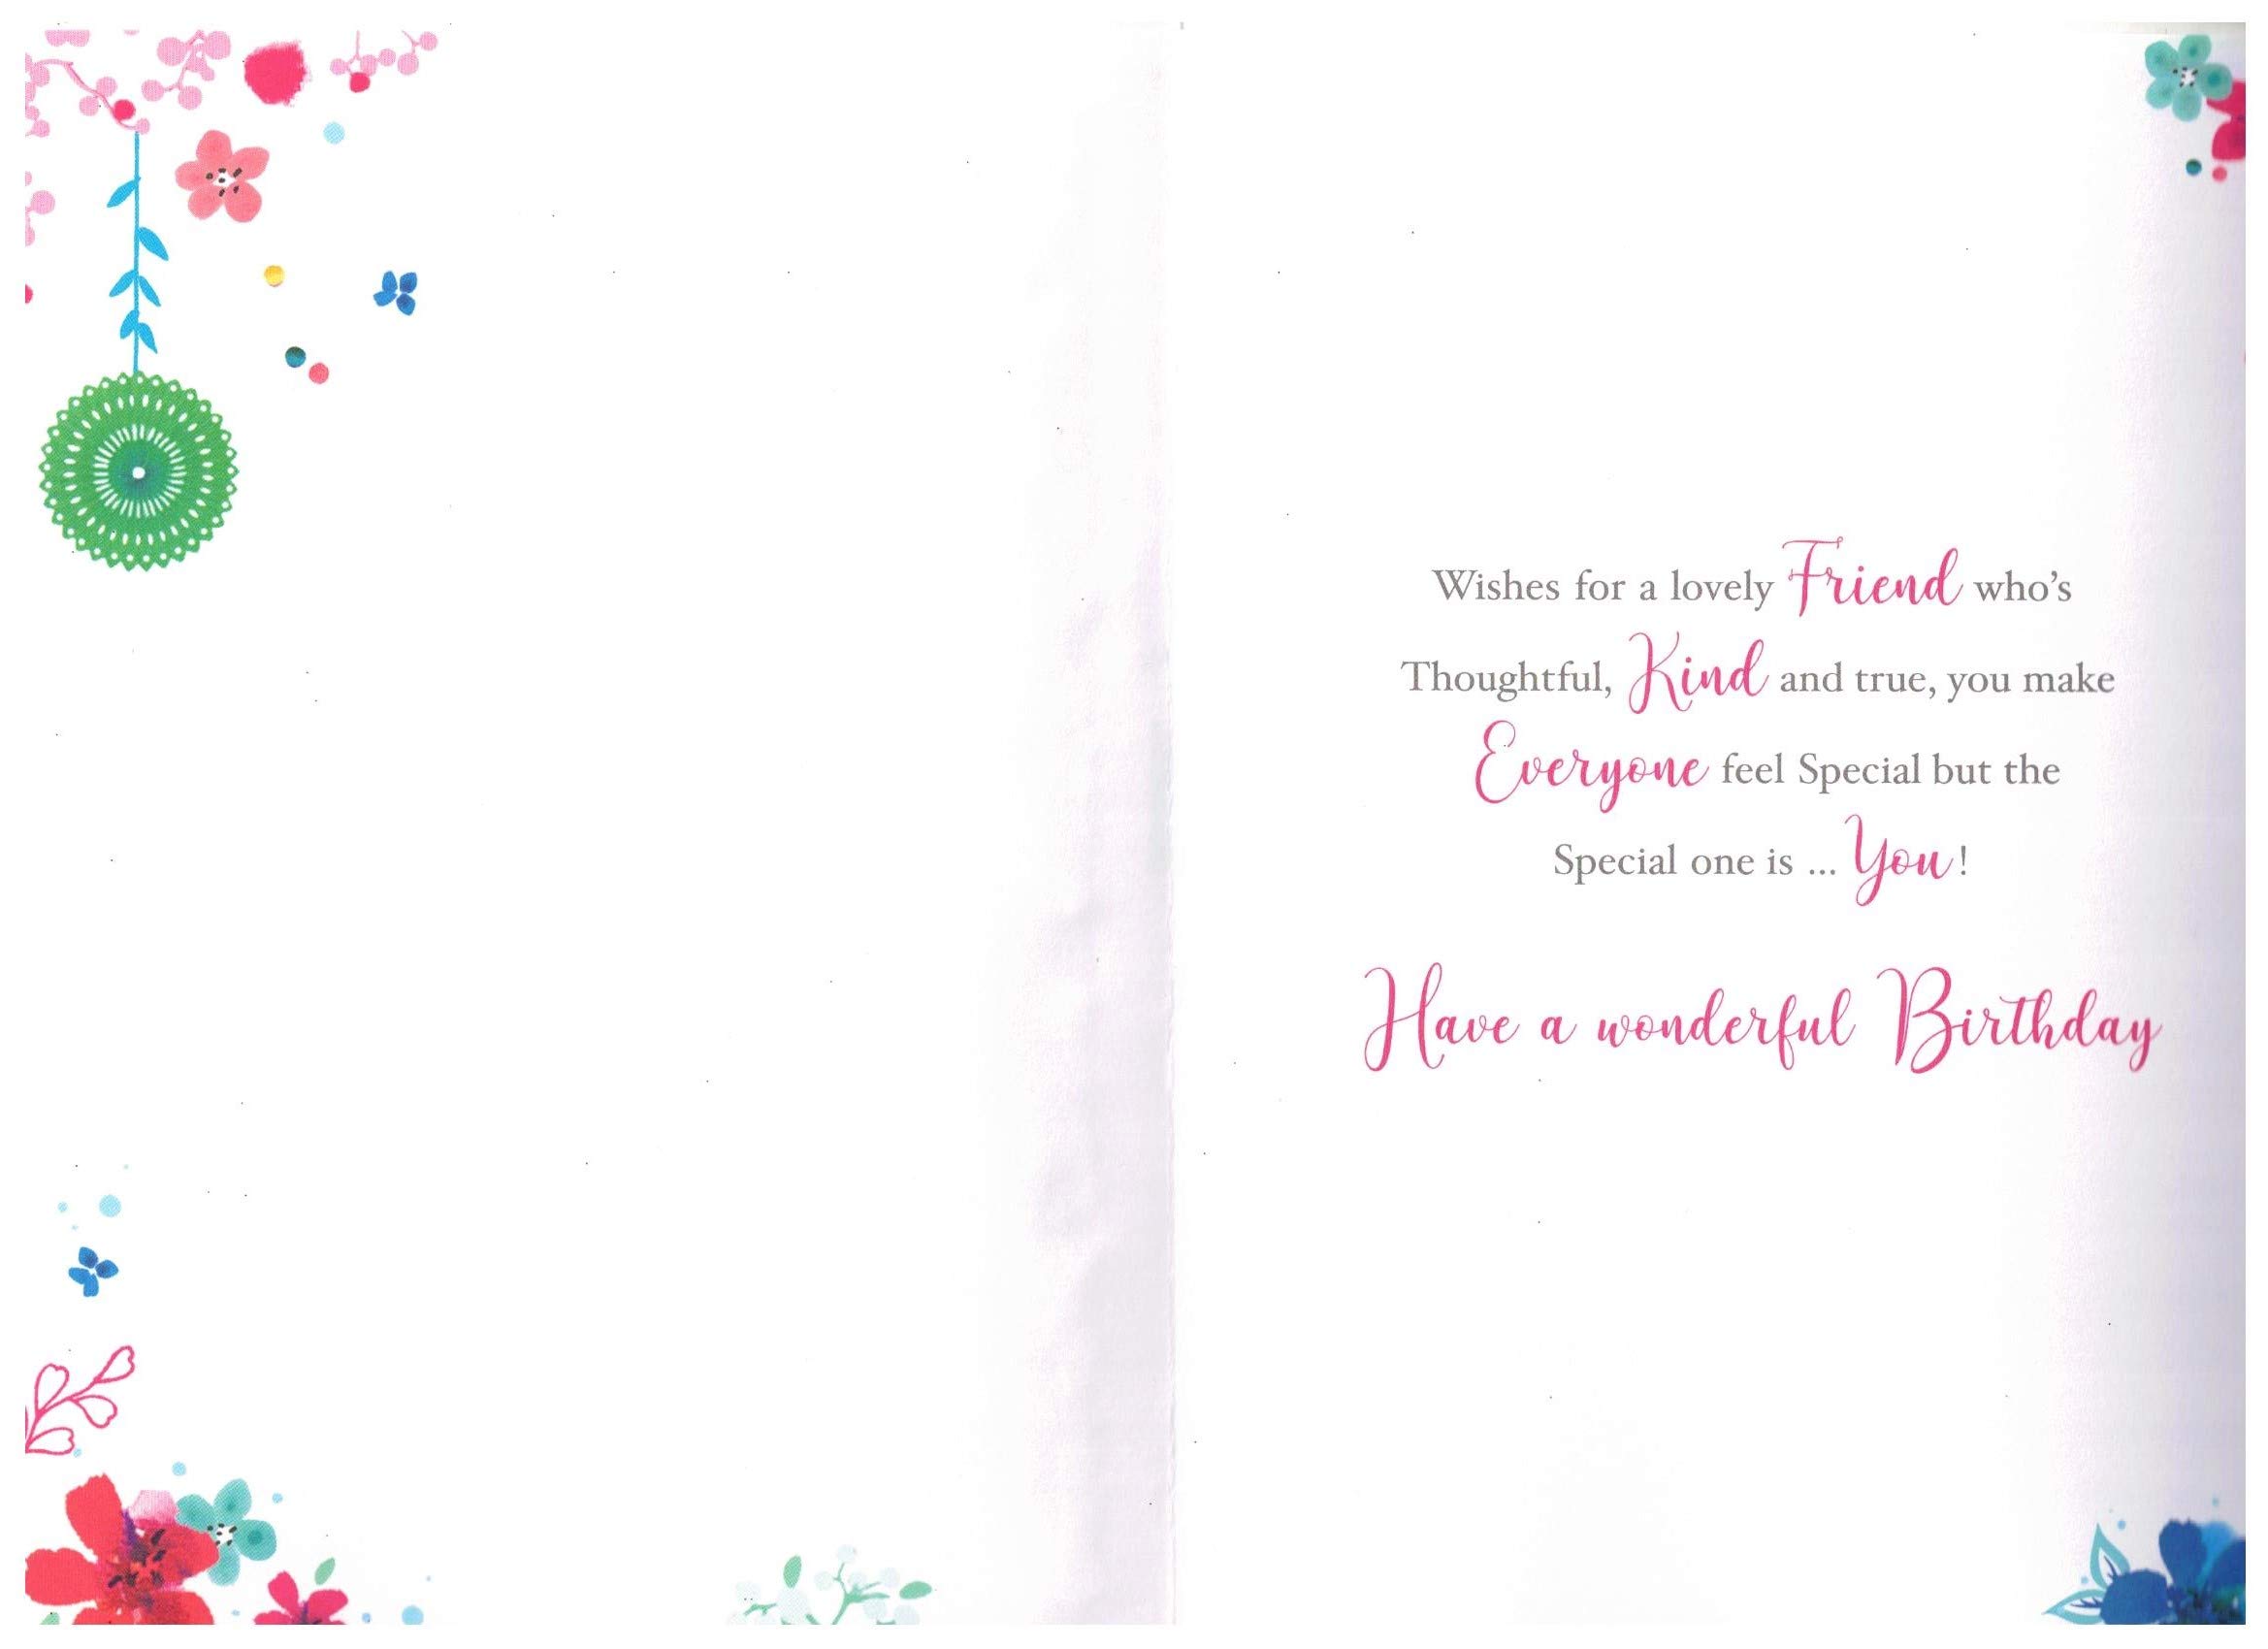 Wishes for a lovely Friend who's
Thoughtful, Kind and true, you make
Everyone feel Special but the
Special one is ... You!
Have a wonderful Birthday